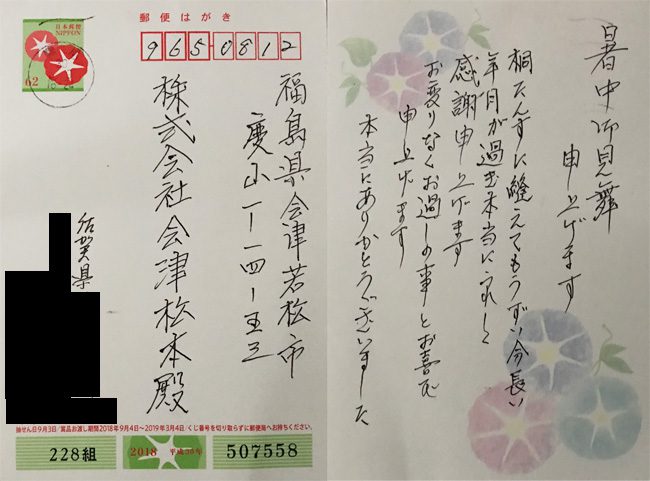 郵便はがき
日本郵便
NIPPON
62
9650812
福島県会津若松市
慶山一ー一四ー五三
株式会社会津松本殿
佐賀県
抽せん日9月3日/賞品お渡し期間2018年9月4日〜2019年3月4日/くじ番号を切り取らずに郵便局へお持ちください。
228組
2018 平成30年
507558
暑中御見舞
申上げます
桐たんすに てもうずい分長い
年月が過ぎ本当に
感謝申上げます
お変りなくお過しの事とお喜び
申上げます
本当にありがとうございました